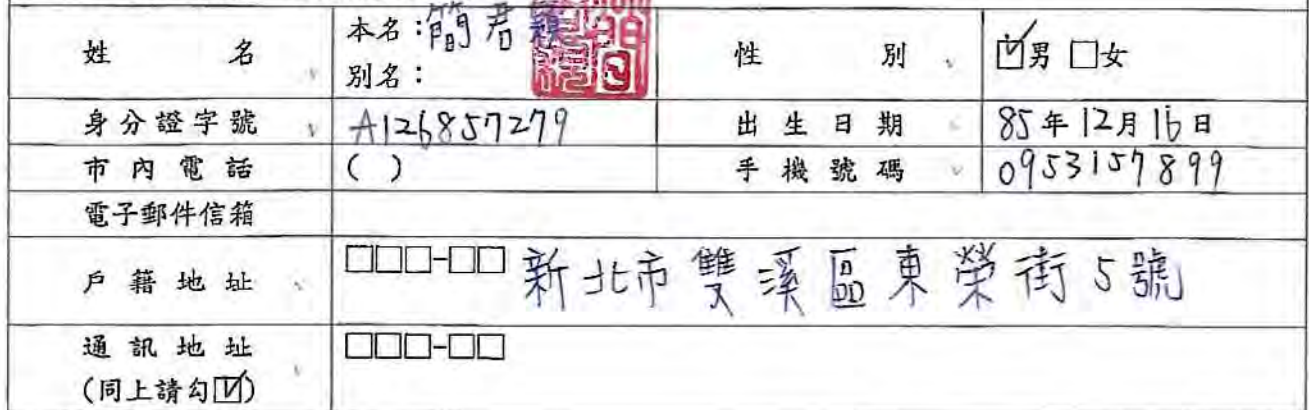 姓名 本名：簡君穎 性別 ☑男 □女
別名：
身分證字號 A126857279 出生日期 85年12月16日
市內電話 ( ) 手機號碼 0953157899
電子郵件信箱
戶籍地址 □□□-□□ 新北市雙溪區東榮街5號
通訊地址 □□□-□□
(同上請勾☑)